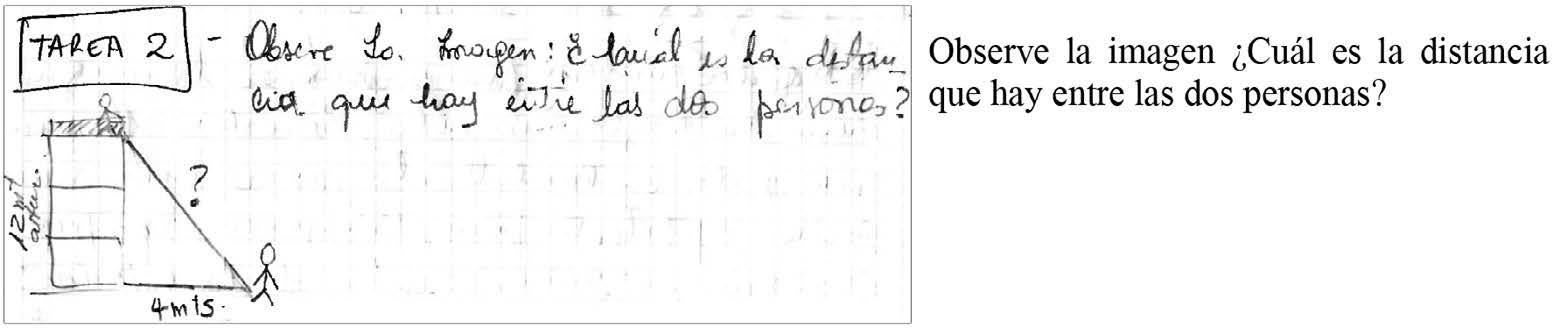 TAREA 2 - Observe La. Imagen: ¿Cuál es la distan_
cia que hay entre las dos personas?
?
12 mt
4 mts.
Observe la imagen ¿Cuál es la distancia
que hay entre las dos personas?